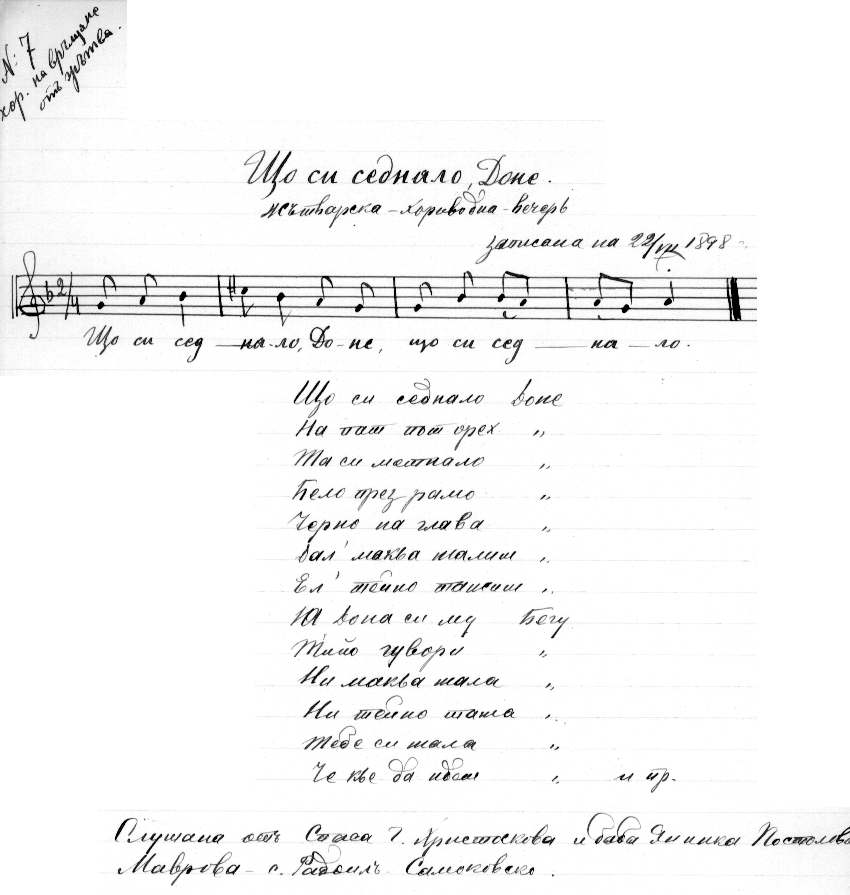 N: 7
хор. на връщане
отъ жътва.
Що си седнало, Доне.
жътварска – хороводна – вечерь
записана на 22/VII 1898
2/4
Що си сед — на-ло, До-не, що си сед — на — ло.
Що си седнало Доне
На пат пот орех „
Та си метнало „
Бело през рамо „
Черно на глава „
Дал' маква жалиш „
Ел' тейно тажиш „
Юа Дона си му Бегу
Тийо гувори „
Ни маква жала „
Ни тейно тажа „
Тебе си жала „
Че кье да идеш „ и пр.
Слушана отъ Спаса Г. Христоскова и баба Янинка Постолова
Маврова – с. Радоилъ Самоковско.